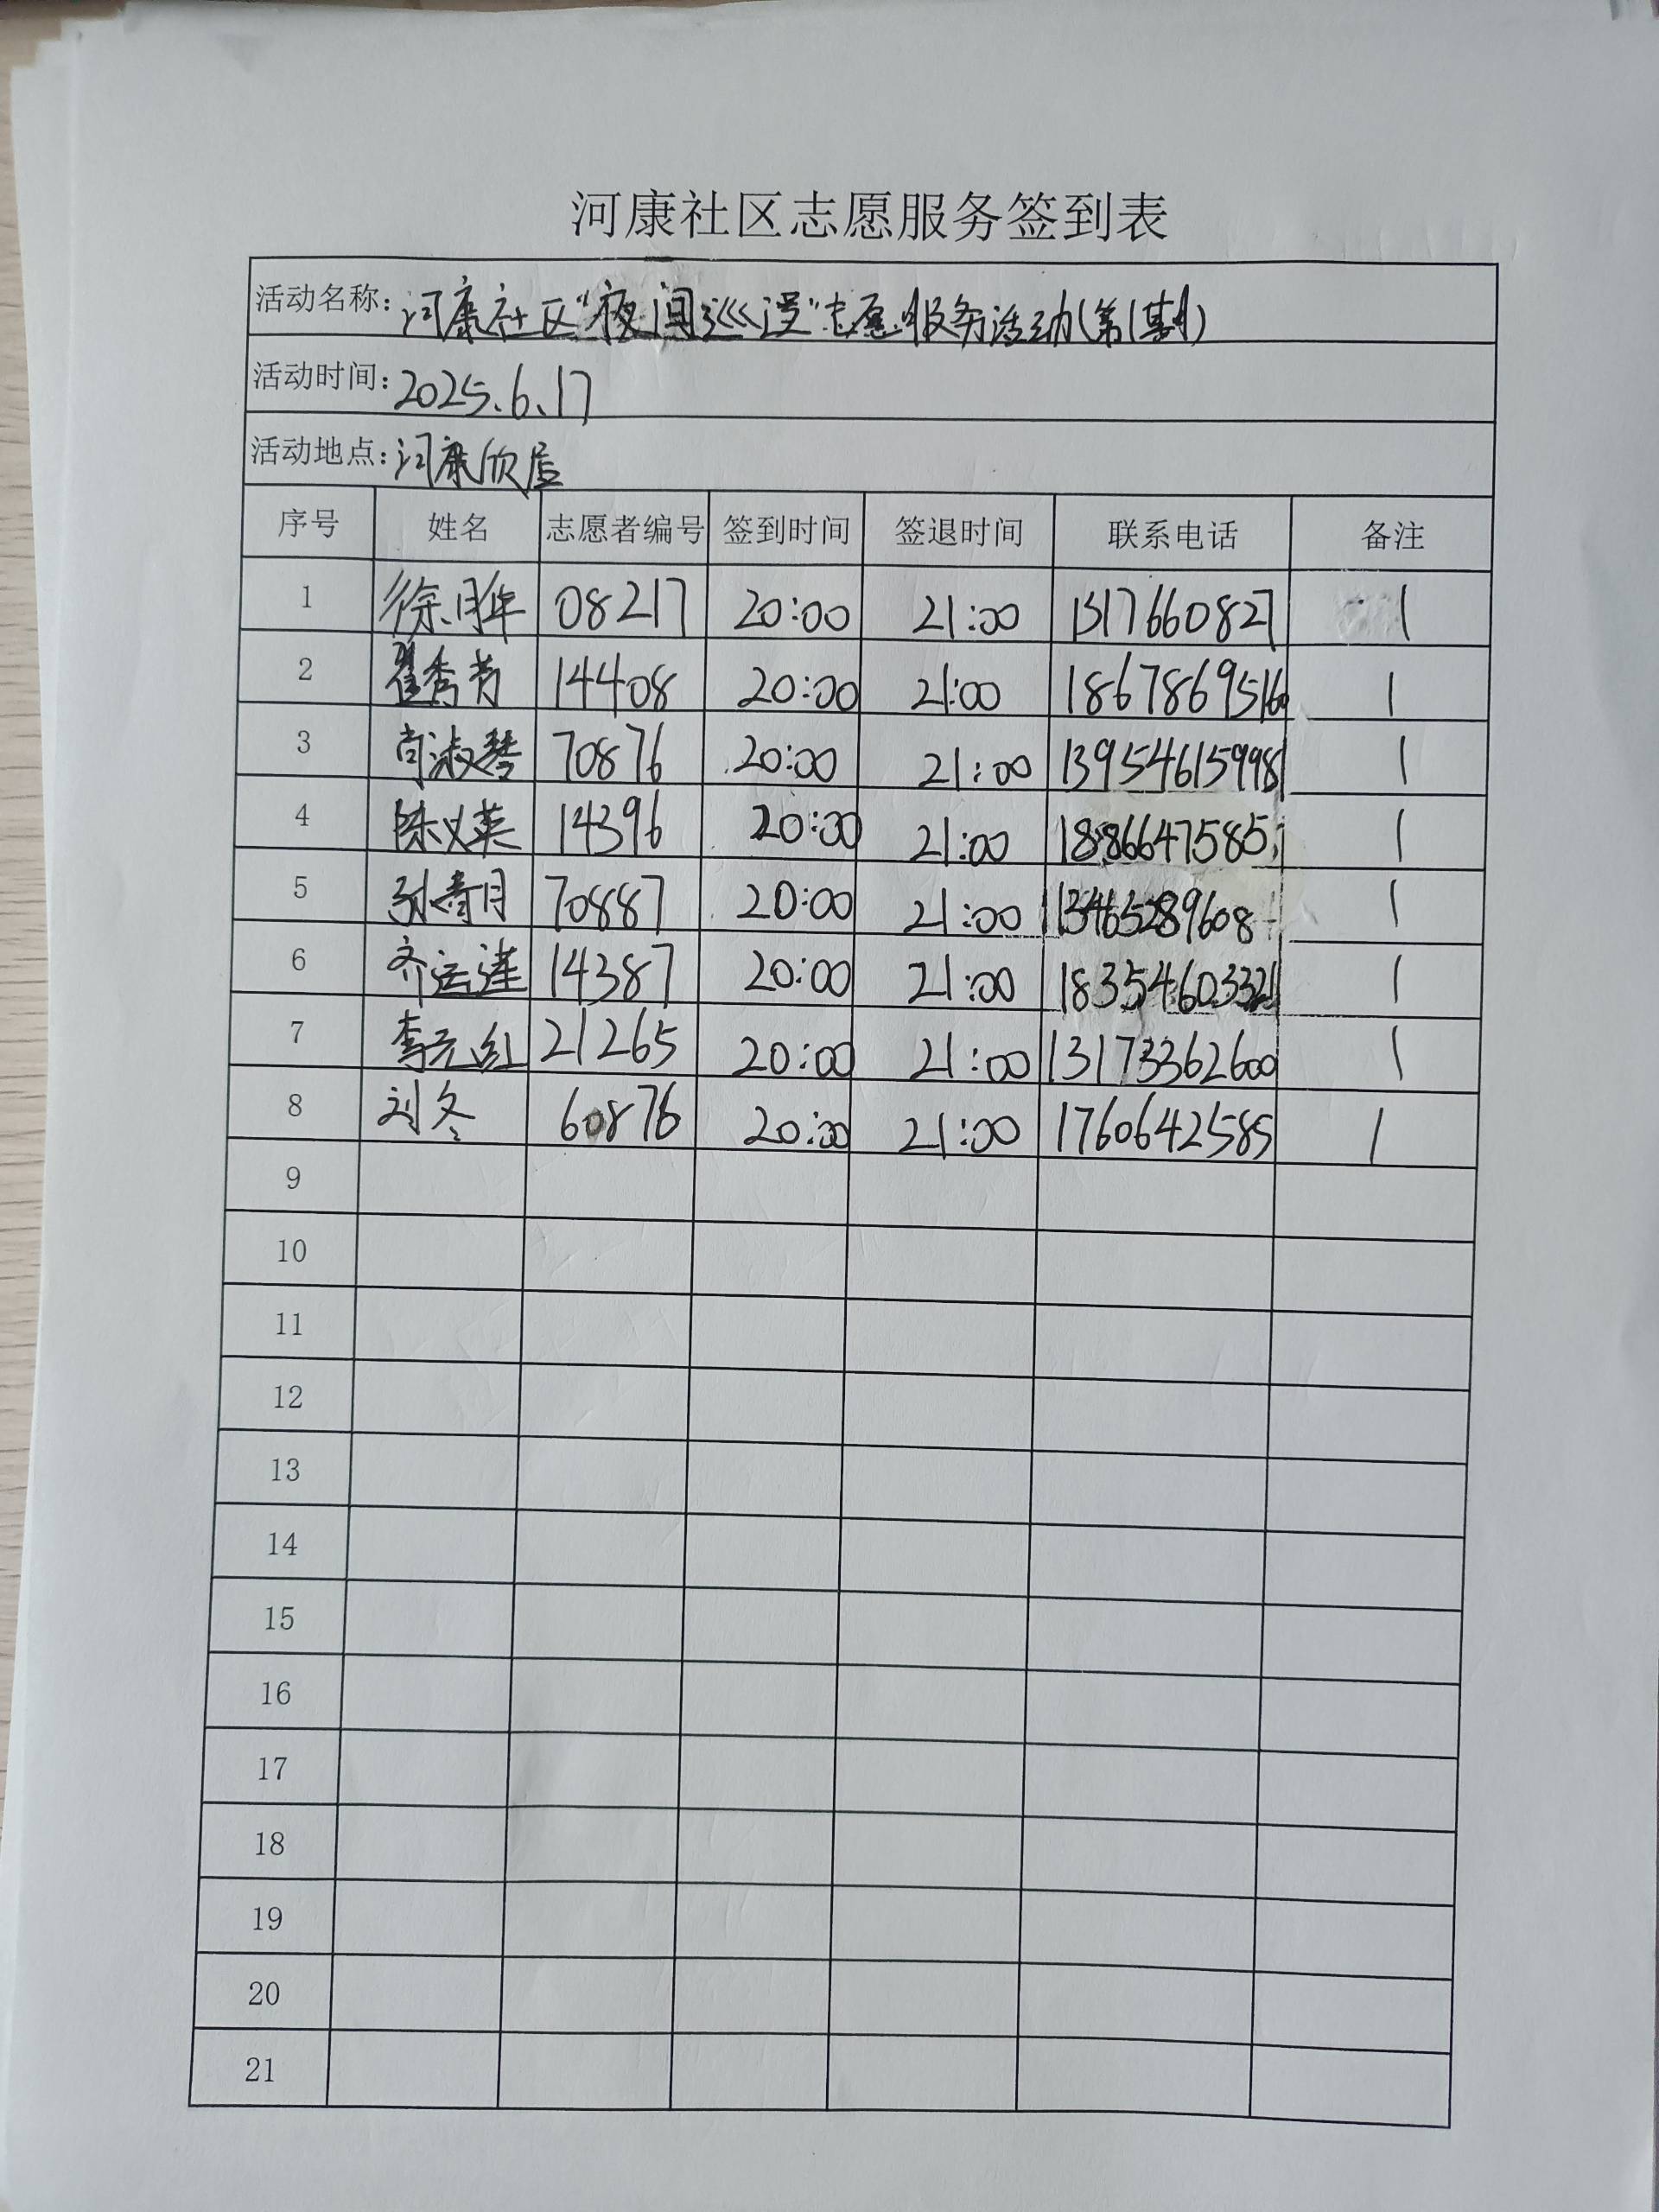 河康社区志愿服务签到表
活动名称: 河康社区"夜间巡逻"志愿服务活动(第1期)
活动时间: 2025.6.17
活动地点: 河康欣居
序号 姓名 志愿者编号 签到时间 签退时间 联系电话 备注
1 徐 08217 20:00 21:00 1317660827 1
2 翟秀芳 14408 20:00 21:00 18678695160 1
3 尚淑琴 70876 20:00 21:00 13954615998 1
4 陈义英 14396 20:00 21:00 1
5 孙青月 70887 20:00 21:00 13465289608 1
6 齐运莲 14387 20:00 21:00 18354603321 1
7 李元红 21265 20:00 21:00 13173362600 1
8 刘冬 60876 20:00 21:00 1760642585 1
9
10
11
12
13
14
15
16
17
18
19
20
21